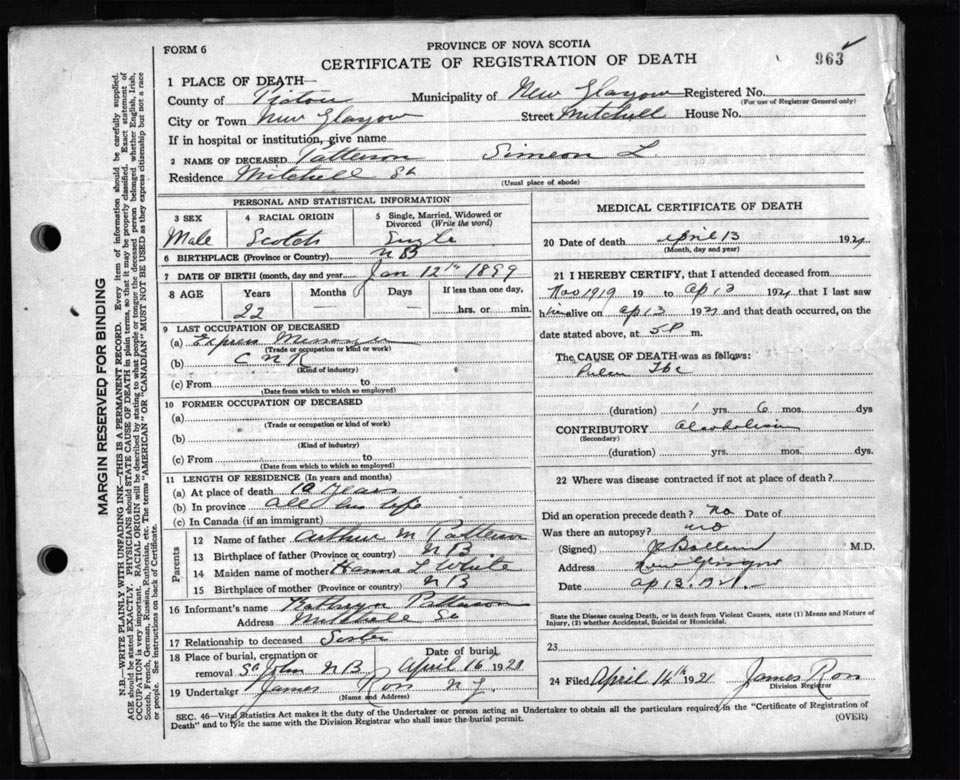 FORM 6
PROVINCE OF NOVA SCOTIA
CERTIFICATE OF REGISTRATION OF DEATH
963
1 PLACE OF DEATH—
County of Pictou Municipality of New Glasgow Registered No.
(For use of Registrar General only)
City or Town New Glasgow Street Mitchell House No.
If in hospital or institution, give name
2 NAME OF DECEASED Patterson Simeon L.
Residence Mitchell St
(Usual place of abode)
PERSONAL AND STATISTICAL INFORMATION
3 SEX 4 RACIAL ORIGIN 5 Single, Married, Widowed or Divorced (Write the word)
Male Scotch Single
6 BIRTHPLACE (Province or Country) N B
7 DATE OF BIRTH (month, day and year) Jan 12th 1899
8 AGE Years Months Days If less than one day,
22 hrs. or min.
9 LAST OCCUPATION OF DECEASED
(a) Express Messenger
(Trade or occupation or kind of work)
(b) C N R
(Kind of industry)
(c) From to
(Date from which to which so employed)
10 FORMER OCCUPATION OF DECEASED
(a)
(Trade or occupation or kind of work)
(b)
(Kind of industry)
(c) From to
(Date from which to which so employed)
11 LENGTH OF RESIDENCE (In years and months)
(a) At place of death 10 years
(b) In province all his life
(c) In Canada (if an immigrant)
Parents
12 Name of father Arthur M Patterson
13 Birthplace of father (Province or country) N B
14 Maiden name of mother Hanna L White
15 Birthplace of mother (Province or country) N B
16 Informant's name Kathryn Patterson
Address Mitchell St
17 Relationship to deceased Sister
18 Place of burial, cremation or removal St John N B Date of burial April 16 1921
19 Undertaker James Ross N G.
(Name and Address)
MEDICAL CERTIFICATE OF DEATH
20 Date of death April 13 1921
(Month, day and year)
21 I HEREBY CERTIFY, that I attended deceased from
Nov 1919 19 to Ap 13 1921 that I last saw
him alive on Ap 13 1921 and that death occurred, on the
date stated above, at 5 P m.
The CAUSE OF DEATH was as follows:
Pulm Tbc
(duration) 1 yrs. 6 mos. dys
CONTRIBUTORY Alcoholism
(Secondary)
(duration) yrs. mos. dys.
22 Where was disease contracted if not at place of death?
Did an operation precede death? no Date of
Was there an autopsy? no
(Signed) M.D.
Address New Glasgow
Date Ap 13. 1921.
State the Disease causing Death, or in death from Violent Causes, state (1) Means and Nature of Injury, (2) whether Accidental, Suicidal or Homicidal.
23
24 Filed April 14th 1921 James Ross
Division Registrar
SEC. 46—Vital Statistics Act makes it the duty of the Undertaker or person acting as Undertaker to obtain all the particulars required in the "Certificate of Registration of
Death" and to file the same with the Division Registrar who shall issue the burial permit.
(OVER)
MARGIN RESERVED FOR BINDING
N.B.—WRITE PLAINLY WITH UNFADING INK—THIS IS A PERMANENT RECORD. Every item of information should be carefully supplied.
AGE should be stated EXACTLY. PHYSICIANS should STATE CAUSE OF DEATH in plain terms, so that it may be properly classified. Exact statement of
OCCUPATION is very important. RACIAL ORIGIN will be described by stating to what people or tongue the deceased person belonged whether English, Irish,
Scotch, French, German, Russian, Ruthenian, etc. The terms "AMERICAN" OR "CANADIAN" MUST NOT BE USED as they express citizenship but not a race
or people. See instructions on back of Certificate.